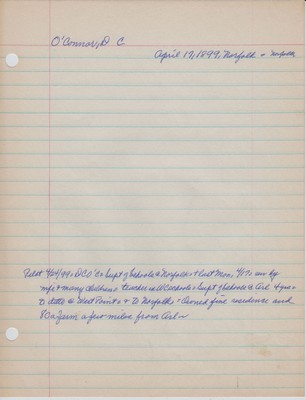 O'Connor, D C
April 17, 1899, Norfolk - Norfolk
Pilot 4/24/99, D C O'C, Supt of Schools @ Norfolk, last Mon, 4/17, sur by
wife & many children, teacher in Schools, Supt of Schools @ & 
to @ West Point & to Norfolk, owned fine residence and
80a farm a few miles from